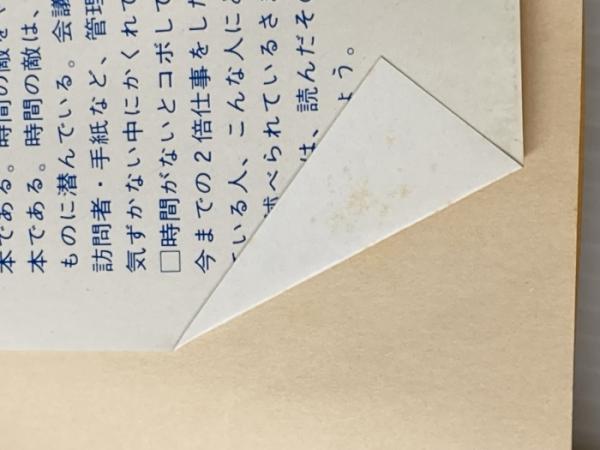 本である。時間の敵を
本である。時間の敵は、
ものに潜んでいる。会議
訪問者・手紙など、管理
気ずかない中にかくれて
□時間がないとコボして
今までの2倍仕事をした
いる人、こんな人に
べられているさ
は、読んだその
ょう。